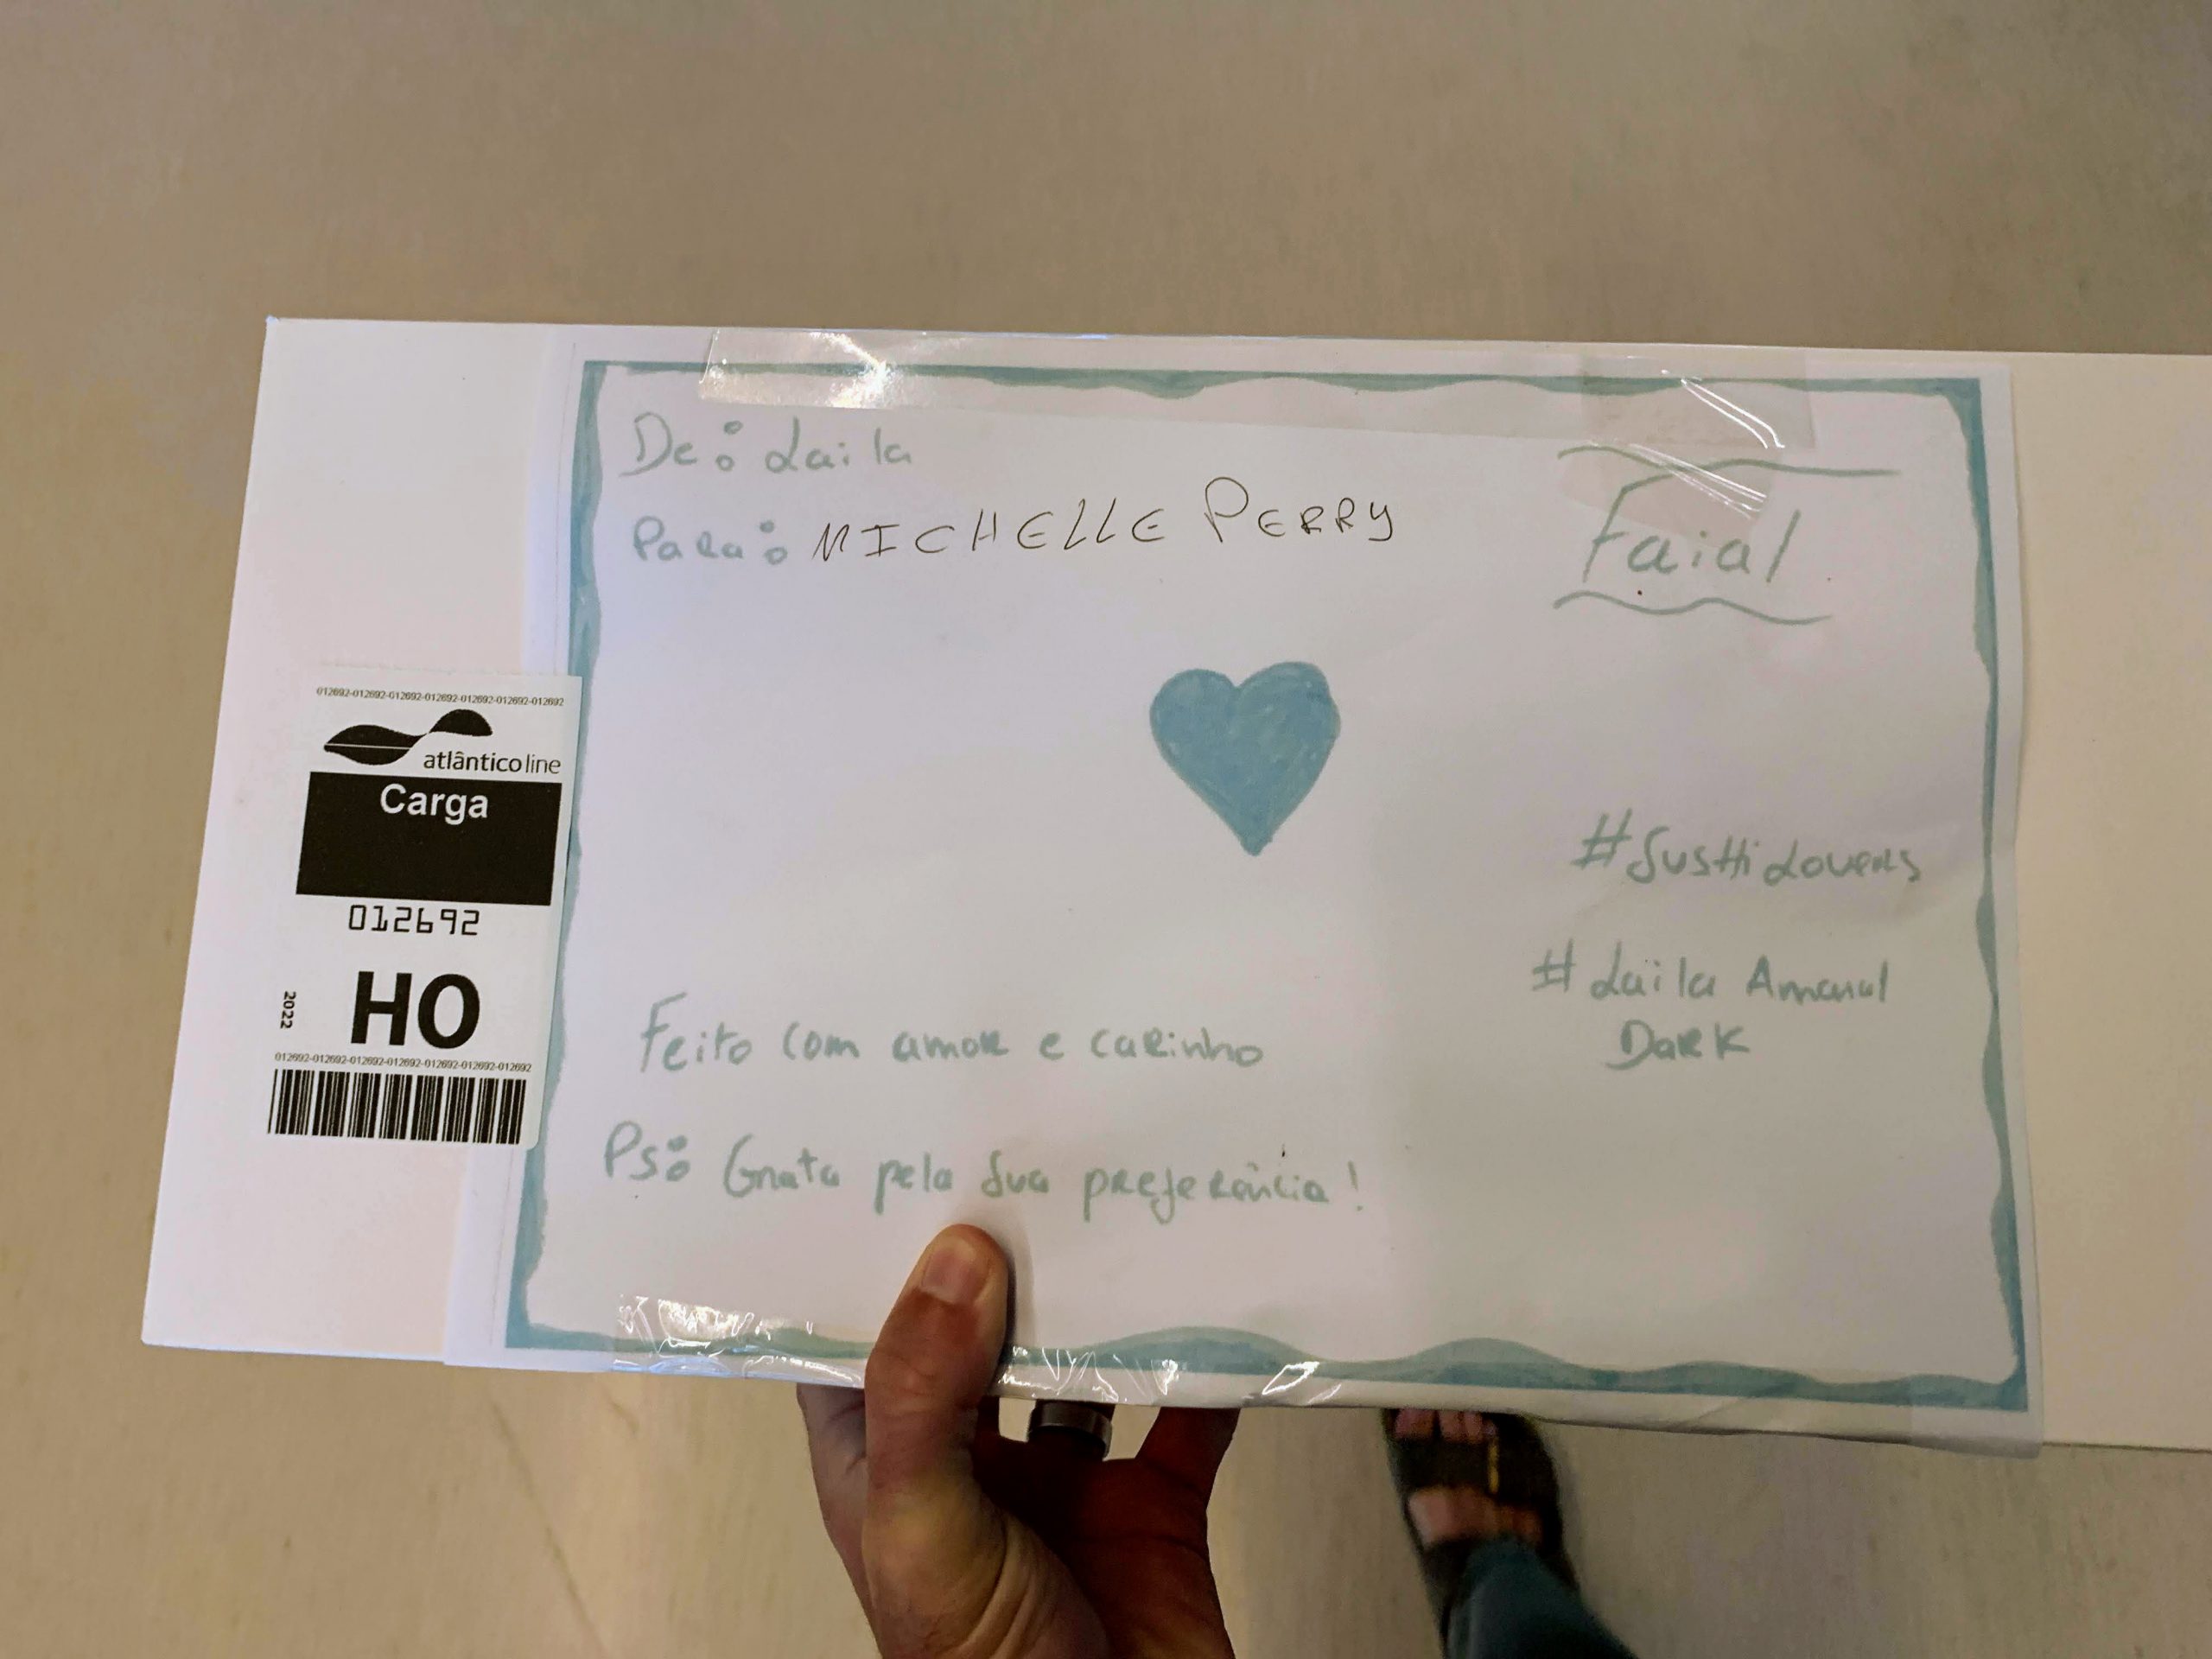 De: Laila
Para: MICHELLE PERRY
Faial
#SusHi Lovers
# Laila Amaral
Dark
Feito com amor e carinho
Ps: Grata pela sua preferência!
012692-012692-012692-012692-012692-012692-012692
atlânticoline
Carga
012692
HO
2022
012692-012692-012692-012692-012692-012692-012692